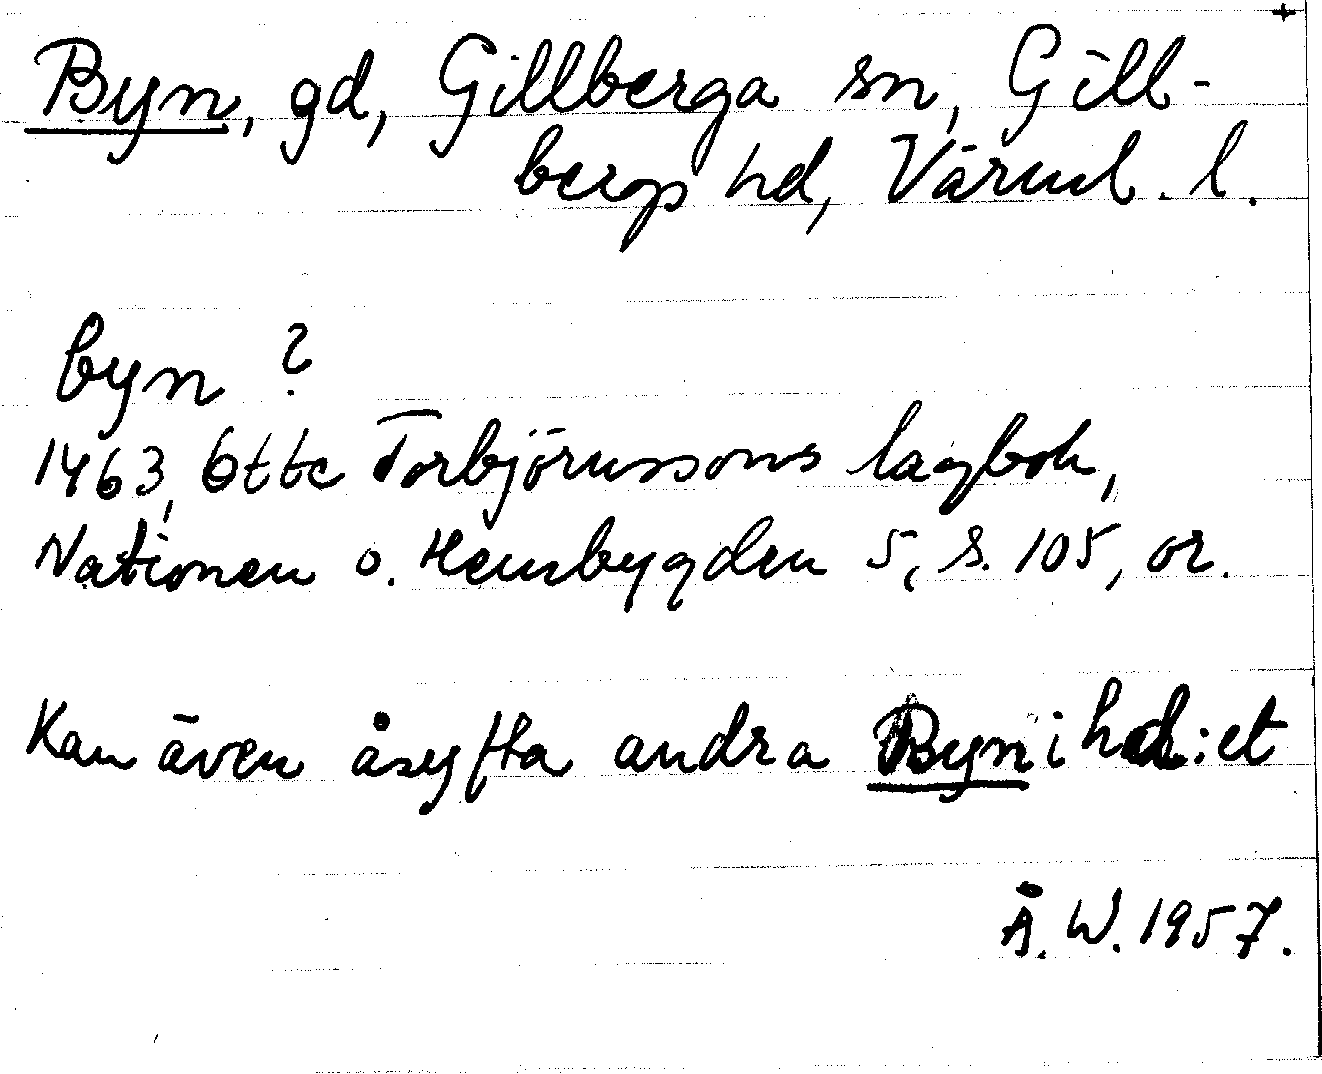 Byn, gd, Gillberga sn, Gill-
bergs hd, Värml. l.
byn ?
1463, Otte Torbjörnssons lagbok,
Nationen o. Hembygden 5, s. 105, or.
Kan även åsyfta andra Byn i hd:et
Å. W. 1957.